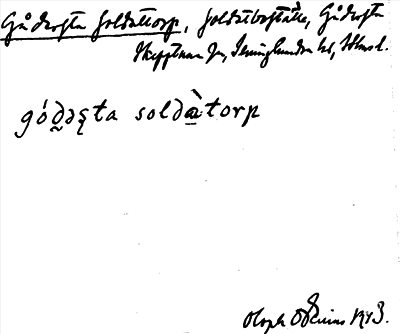 Gådersta soldattorp, soldatboställe, Gådersta
Skepptuna sn, Seminghundra hd, Uhl.
góδəṣta soldàtorp
Oloph Odenius 1943.